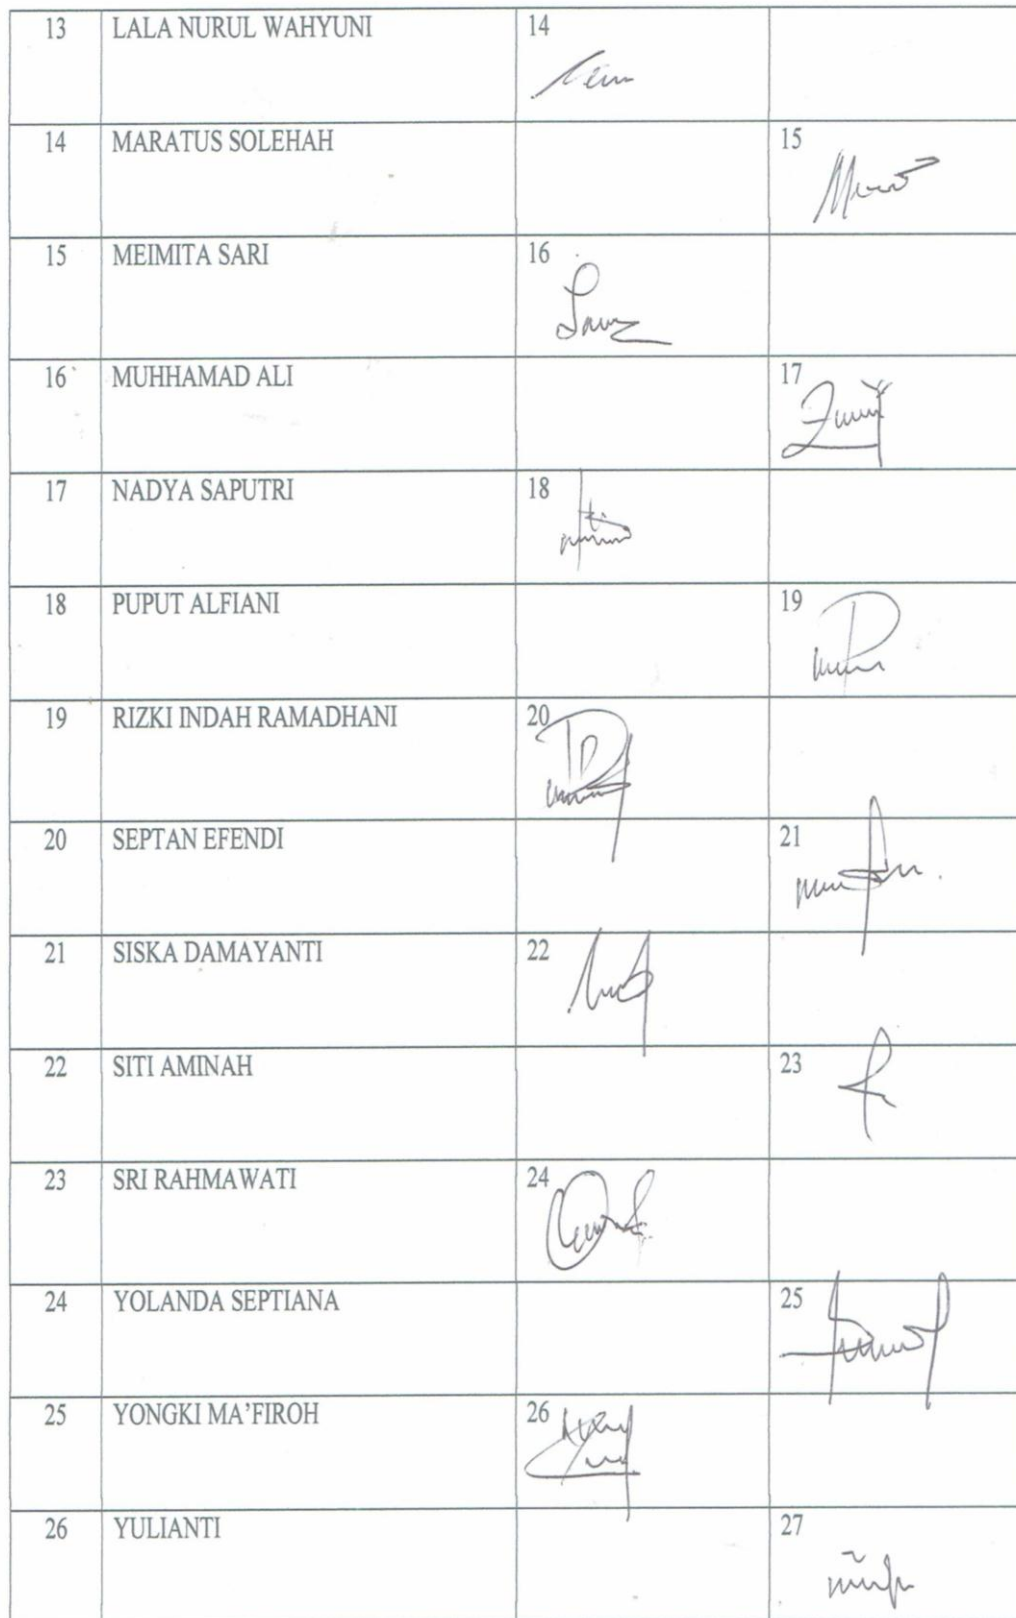 13 LALA NURUL WAHYUNI 14
14 MARATUS SOLEHAH 15
15 MEIMITA SARI 16
16 MUHHAMAD ALI 17
17 NADYA SAPUTRI 18
18 PUPUT ALFIANI 19
19 RIZKI INDAH RAMADHANI 20
20 SEPTAN EFENDI 21
21 SISKA DAMAYANTI 22
22 SITI AMINAH 23
23 SRI RAHMAWATI 24
24 YOLANDA SEPTIANA 25
25 YONGKI MA'FIROH 26
26 YULIANTI 27